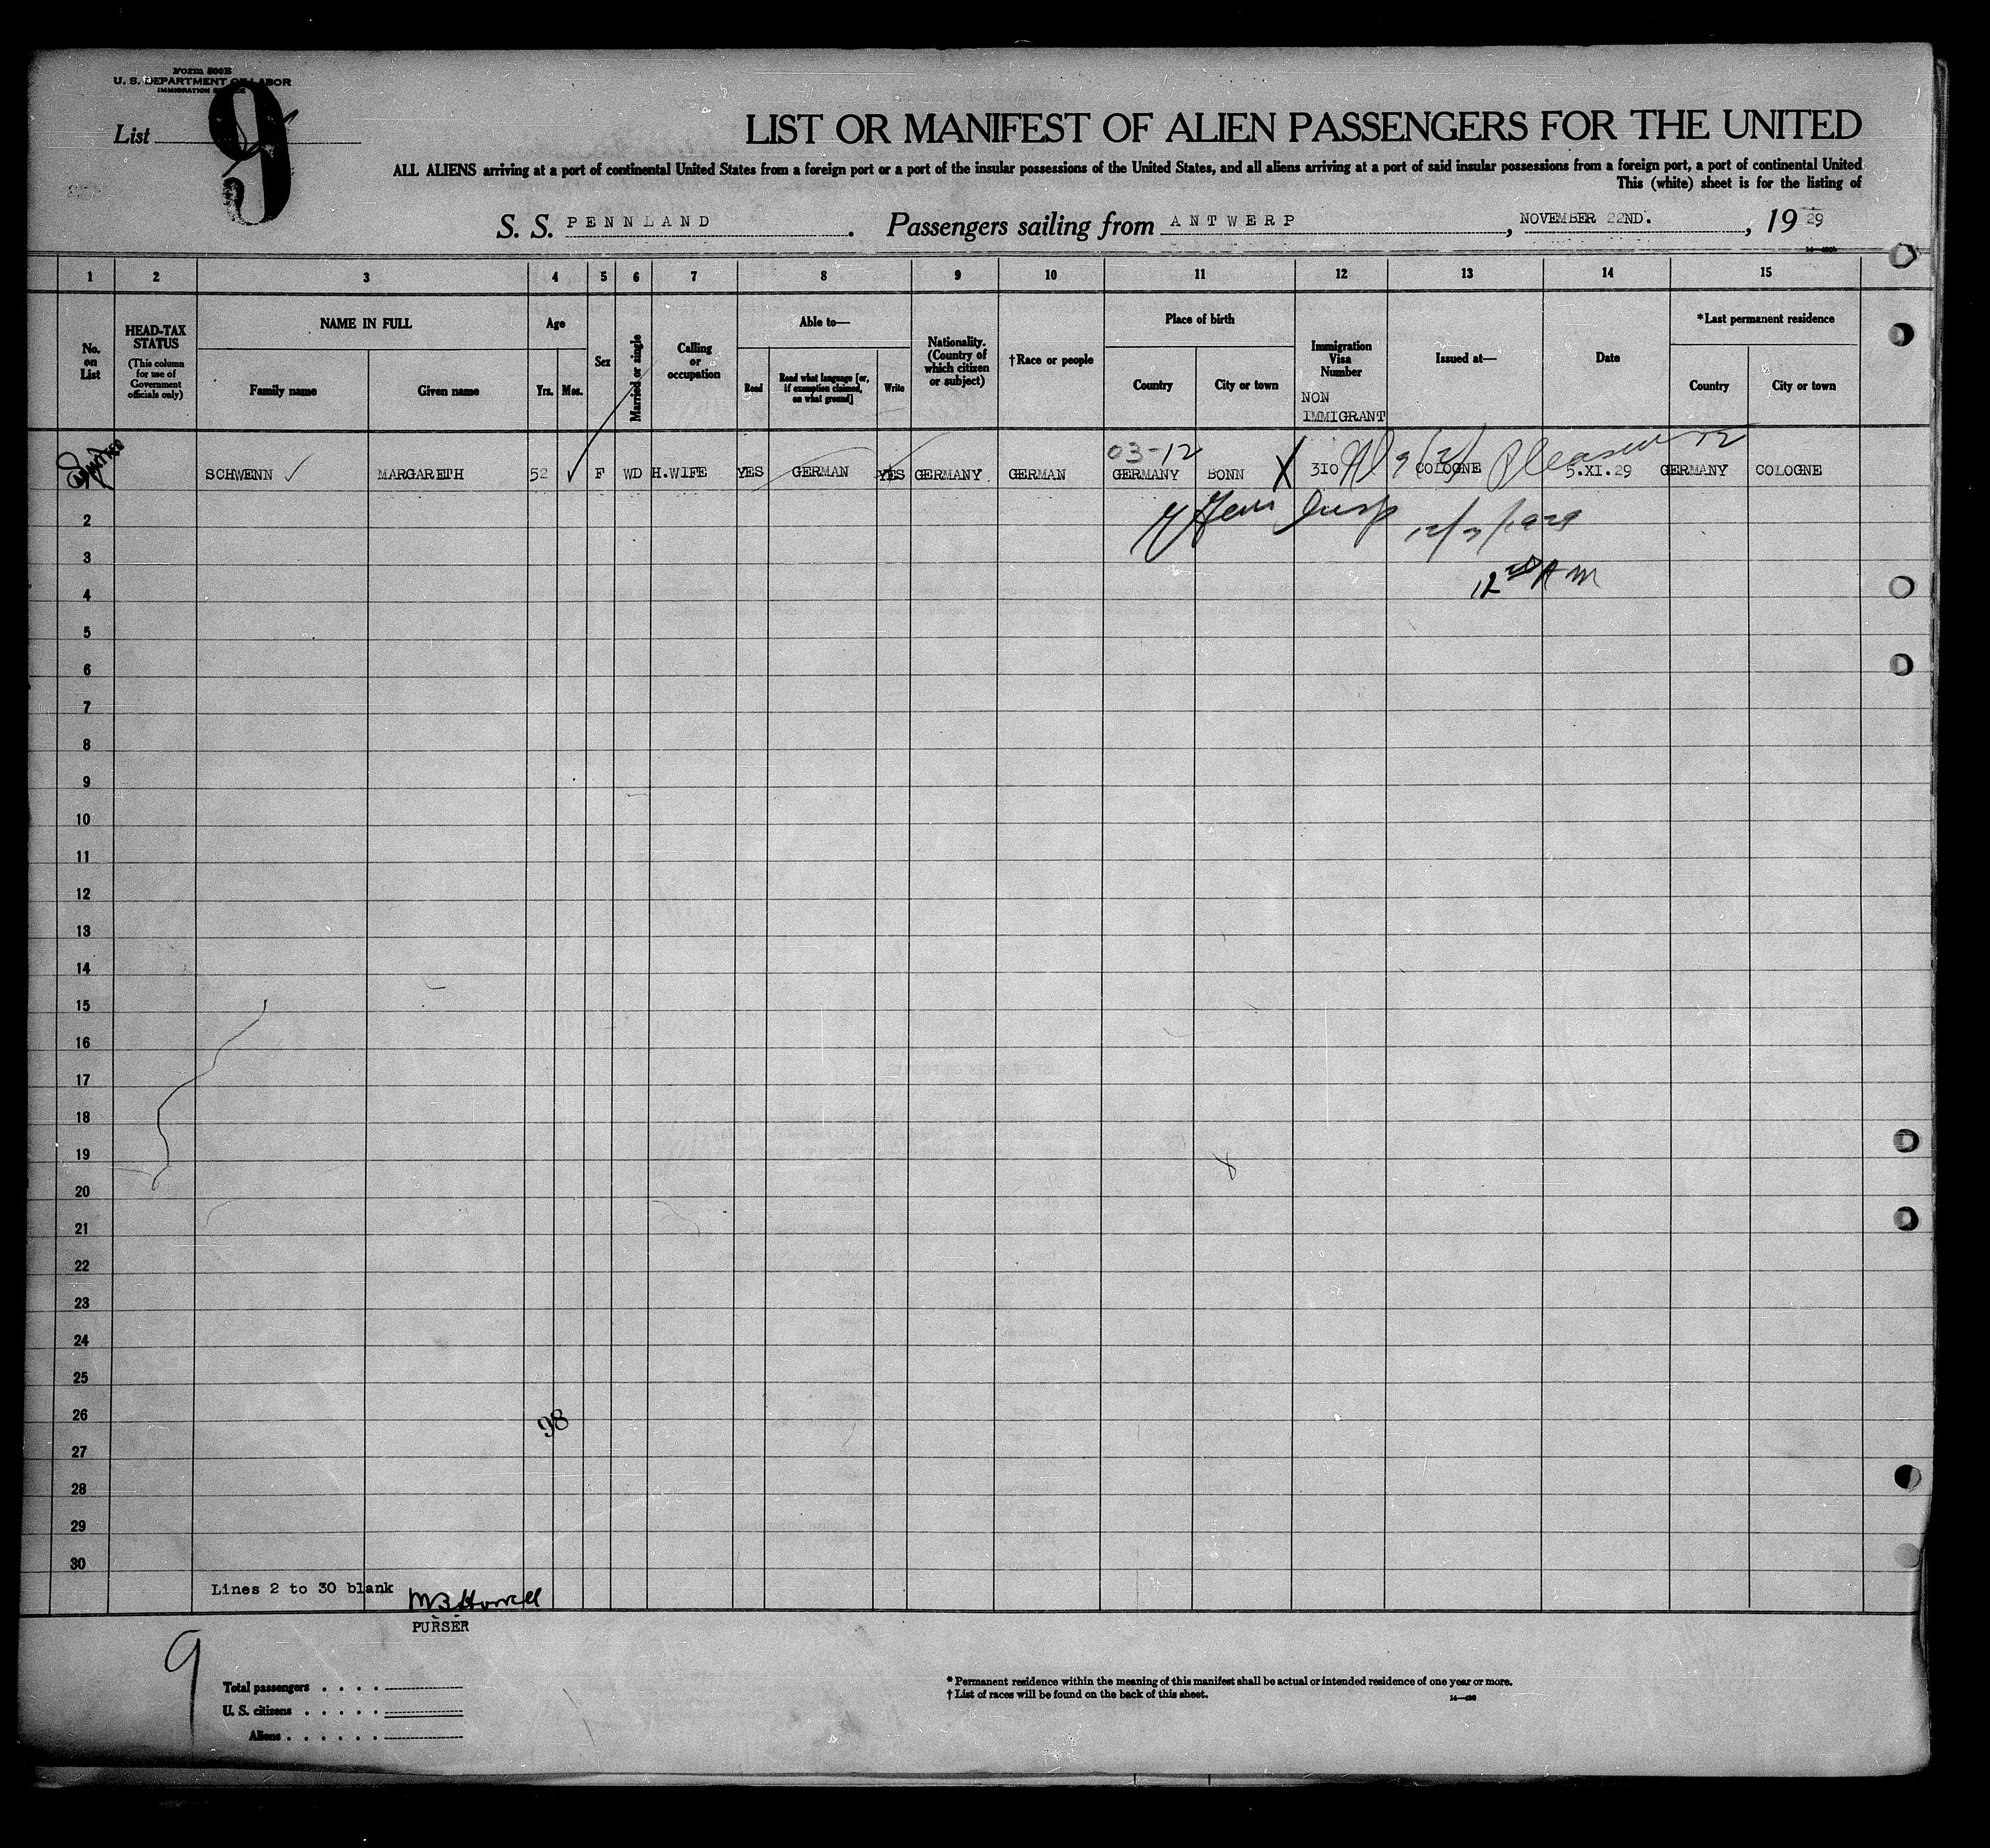 Form 500B
U. S. DEPARTMENT OF LABOR
IMMIGRATION SERVICE
List 9
LIST OR MANIFEST OF ALIEN PASSENGERS FOR THE UNITED
ALL ALIENS arriving at a port of continental United States from a foreign port or a port of the insular possessions of the United States, and all aliens arriving at a port of said insular possessions from a foreign port, a port of continental United
This (white) sheet is for the listing of
S. S. PENNLAND. Passengers sailing from ANTWERP, NOVEMBER 22ND., 1929
1 2 3 4 5 6 7 8 9 10 11 12 13 14 15
No. on List
HEAD-TAX STATUS
(This column for use of Government officials only)
NAME IN FULL
Family name
Given name
Age
Yrs.
Mos.
Sex
Married or single
Calling or occupation
Able to—
Read
Read what language [or, if exemption claimed, on what ground]
Write
Nationality. (Country of which citizen or subject)
†Race or people
Place of birth
Country
City or town
Immigration Visa Number
NON IMMIGRANT
Issued at—
Date
*Last permanent residence
Country
City or town
03-12
ADMITTED SCHWENN MARGARETH 52 F WD H.WIFE YES GERMAN YES GERMANY GERMAN GERMANY BONN X 310 COLOGNE 5.XI.29 GERMANY COLOGNE
Pleasure
Insp 12/3/1929
2
3
AM
4
5
6
7
8
9
10
11
12
13
14
15
16
17
18
19
20
21
22
23
24
25
26
98
27
28
29
30
Lines 2 to 30 blank
PURSER
9
Total passengers
U. S. citizens
Aliens
* Permanent residence within the meaning of this manifest shall be actual or intended residence of one year or more.
† List of races will be found on the back of this sheet.